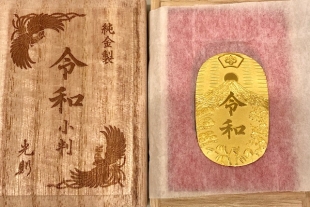 純金製
令和
小判
光則
令和